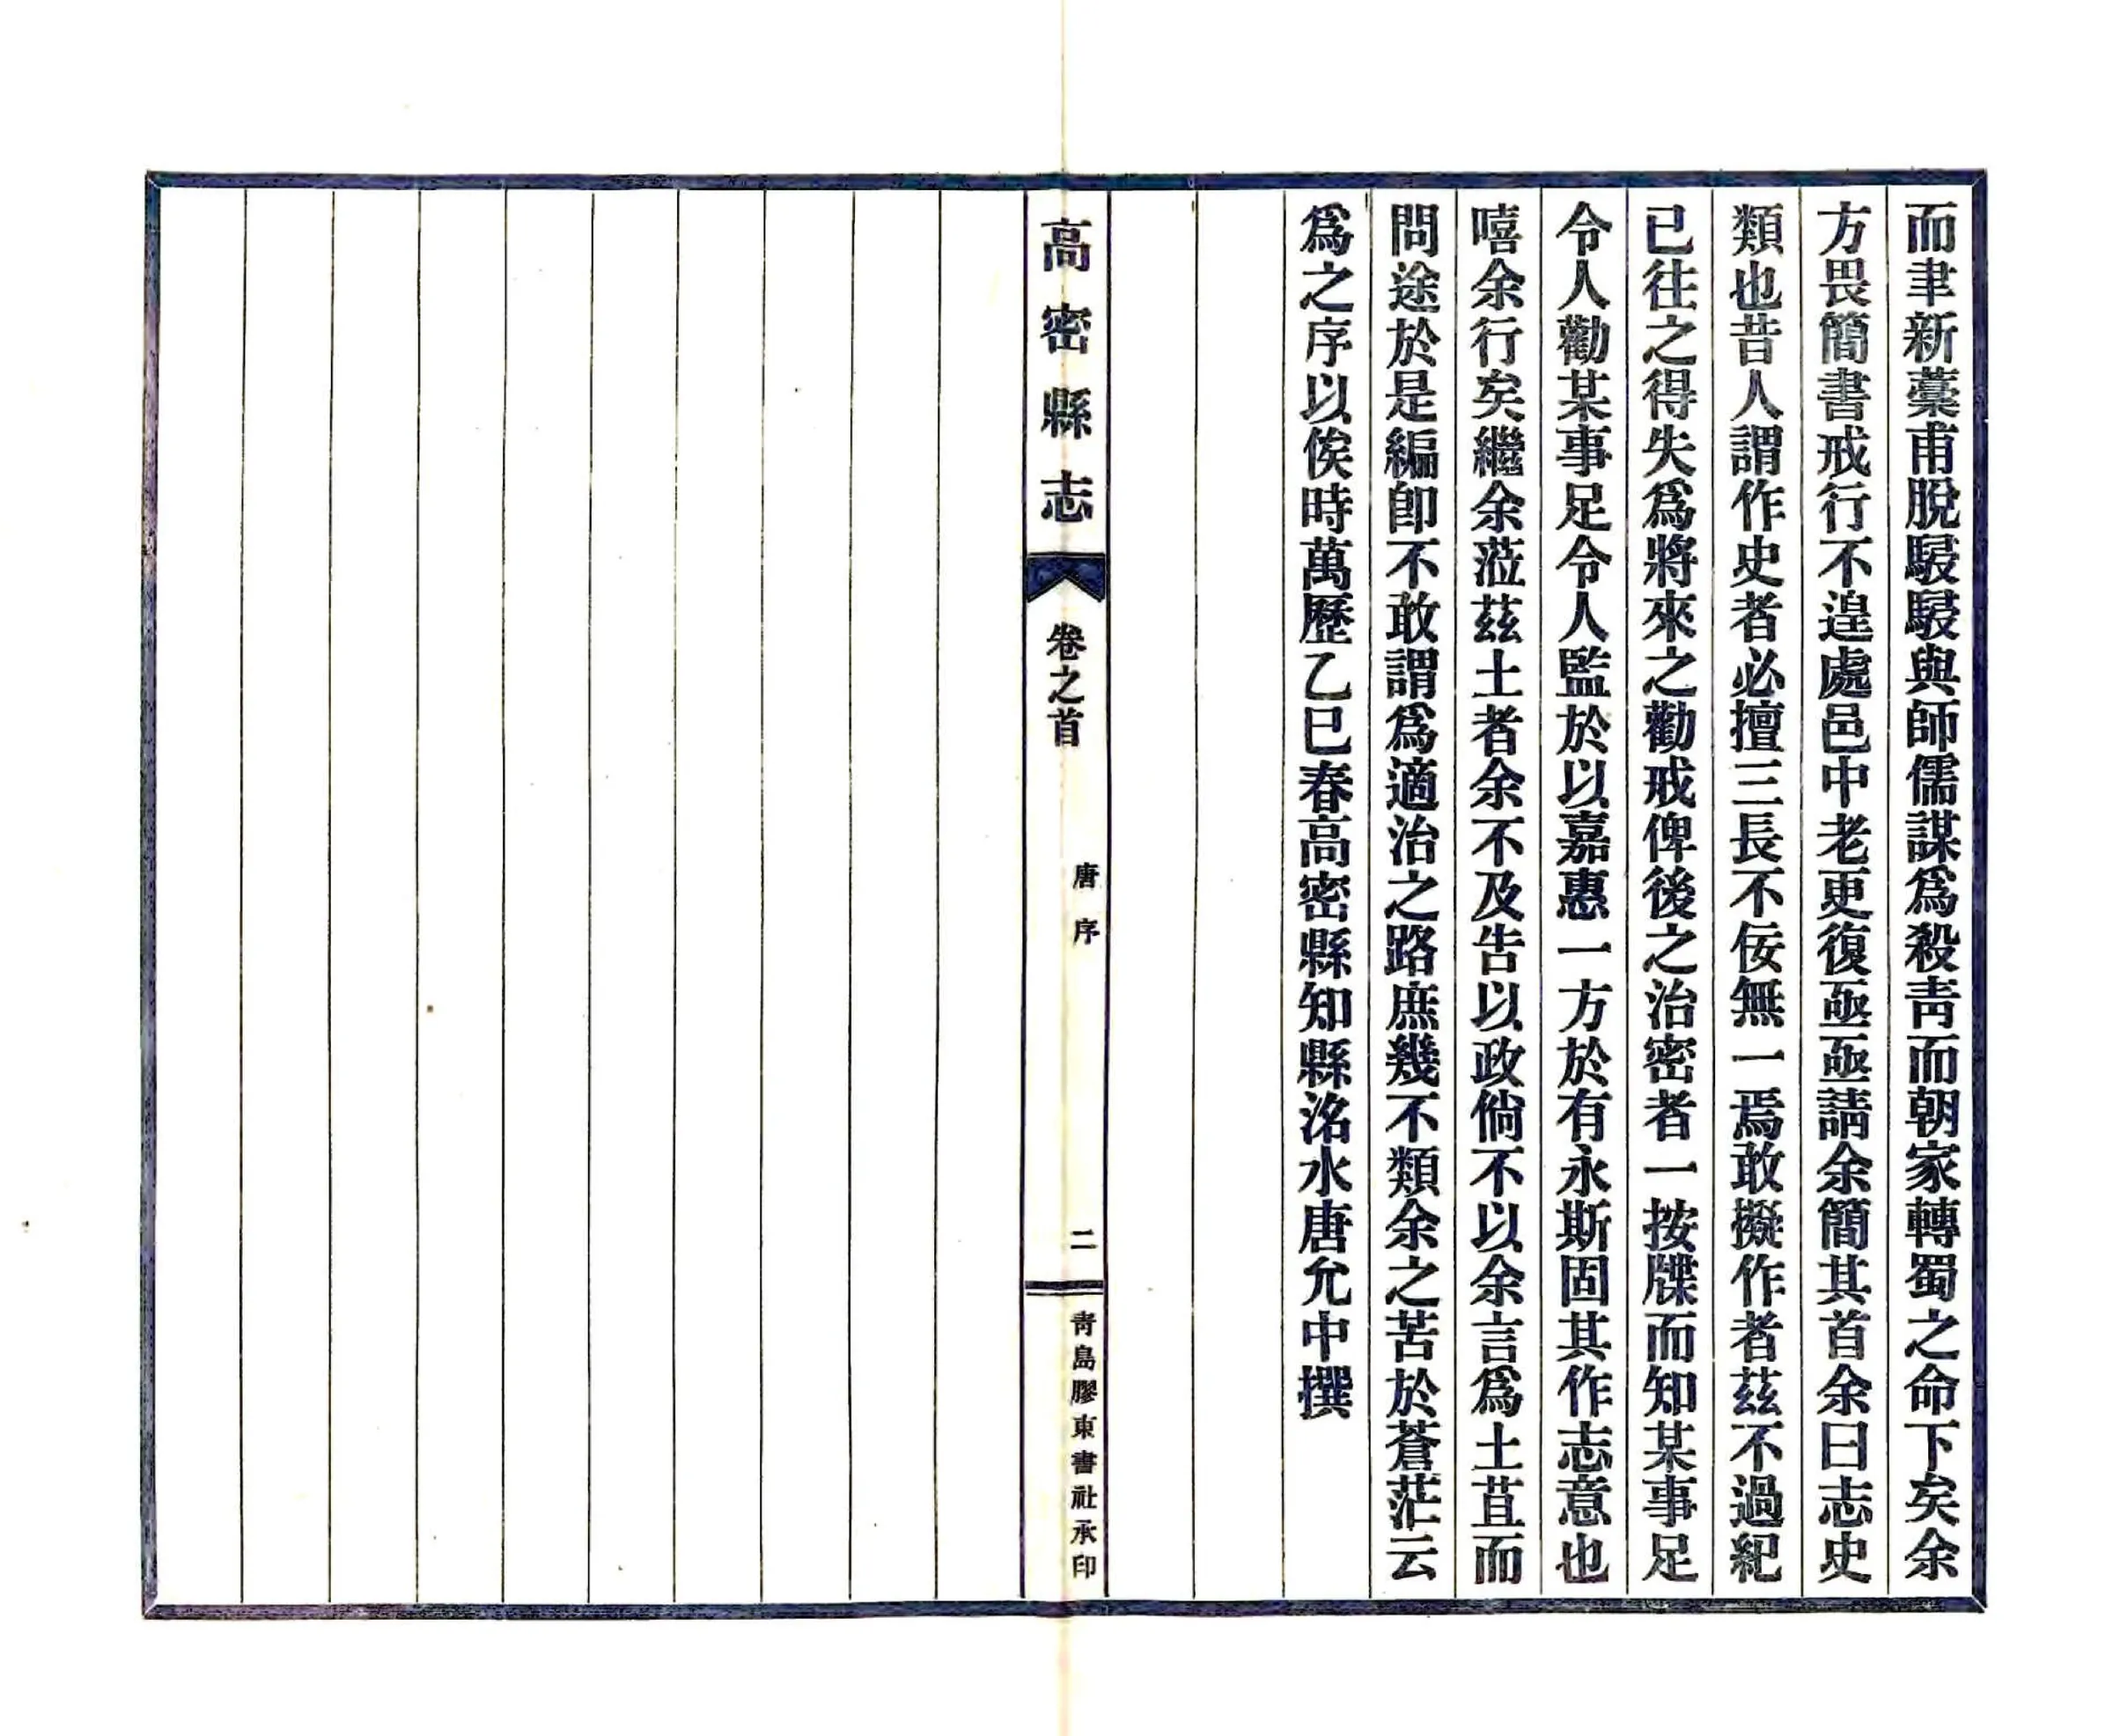 而聿新藁甫脫駸駸與師儒謀爲殺靑而朝家轉蜀之命下矣余
方畏簡書戒行不遑處邑中老更復亟亟請余簡其首余曰志史
類也昔人謂作史者必擅三長不佞無一焉敢擬作者茲不過紀
已往之得失爲將來之勸戒俾後之治密者一按牒而知某事足
令人勸某事足令人監於以嘉惠一方於有永斯固其作志意也
嘻余行矣繼余蒞茲土者余不及告以政倘不以余言爲土苴而
問途於是編卽不敢謂爲適治之路庶幾不類余之苦於蒼茫云
爲之序以俟時萬歷乙巳春高密縣知縣洺水唐允中撰
高密縣志
卷之首
唐序
二
靑島膠東書社承印